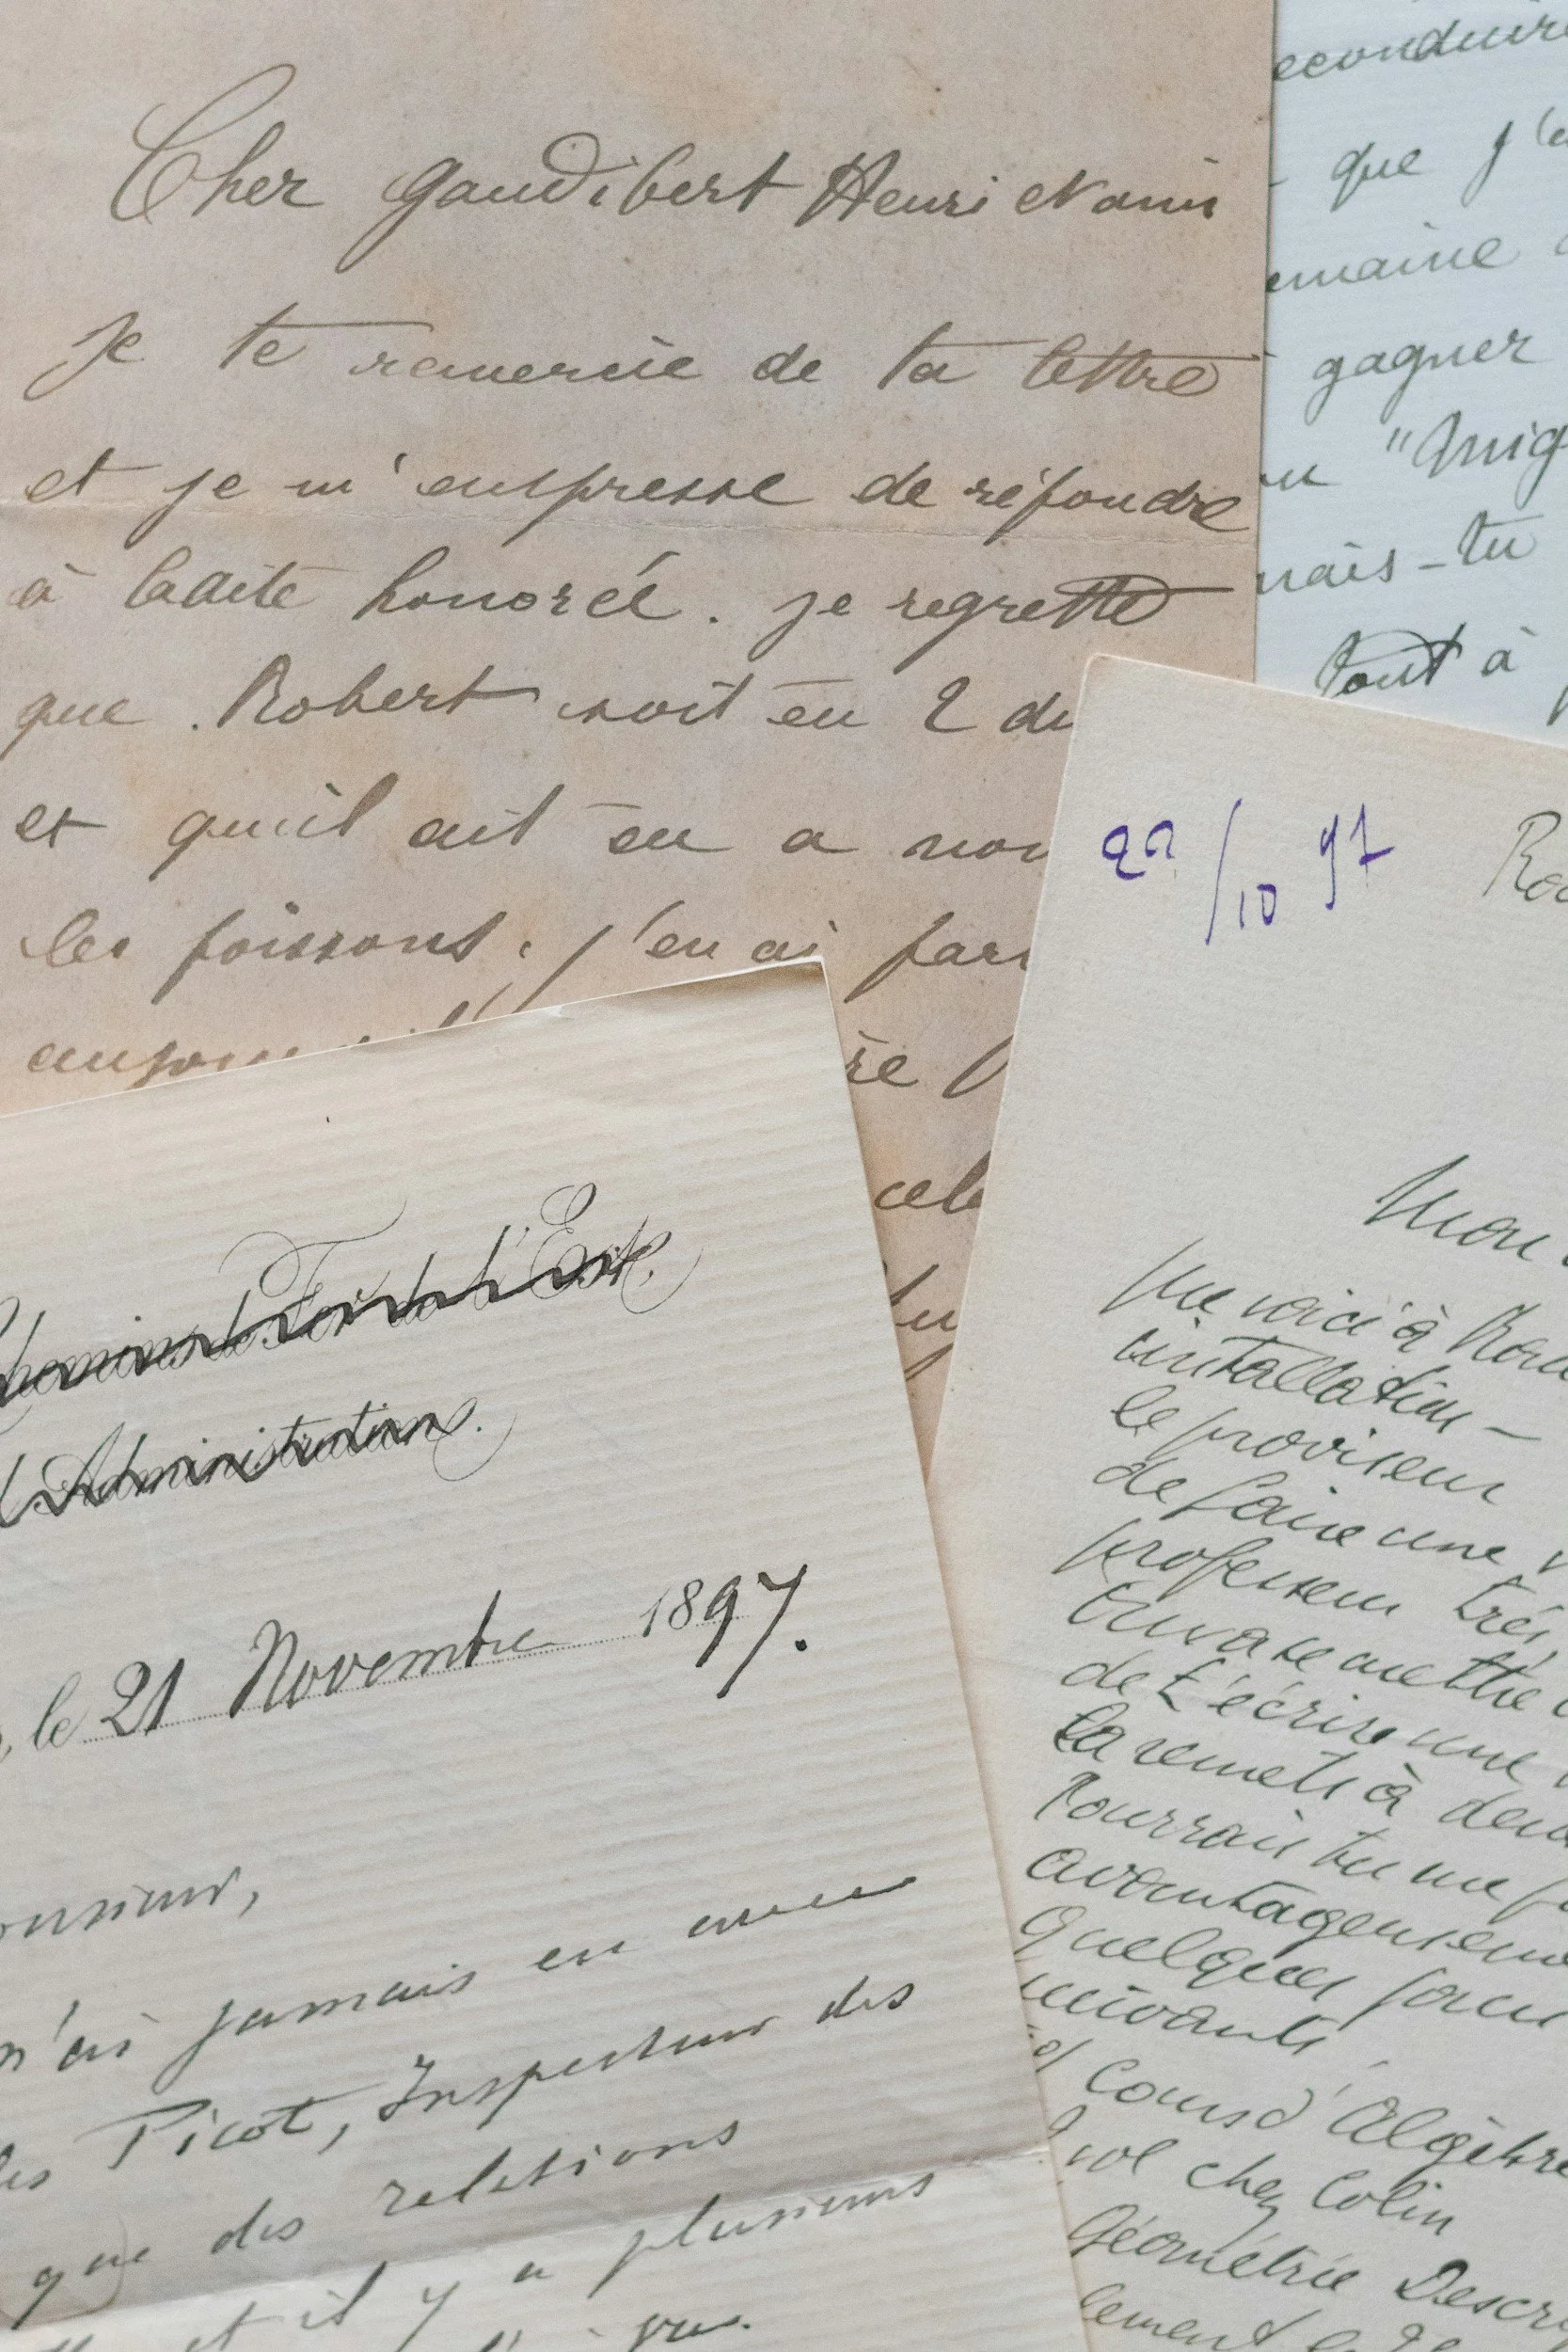 Cher Gaudibert Henri et amis
Je te remercie de ta lettre
et je m'empresse de répondre
à ladite honoré. je regrette
que Robert soit eu 2 de
et qu'il ait eu a nou
les poissons. j'en ai par
re
cele
econduire
que j'
emaine
gagner
"Mig
nais-tu
tout à
22/10 97
Rou
Mon
Me voici à Rou
installation –
le proviseur
de faire une v
professeur très
de t'écrire une
la remets à dem
Pourrais tu me f
avantageuseme
Quelques
suivants
Cours d'Algèbre
vol chez Colin
Géométrie Descr
lement
Chemins de Fer de l'Est.
Administration.
, le 21 Novembre 1897.
onsieur,
n'ai jamais eu aucune
les Picot, Inspecteur des
que des relations
et il y a plusieurs
vue.